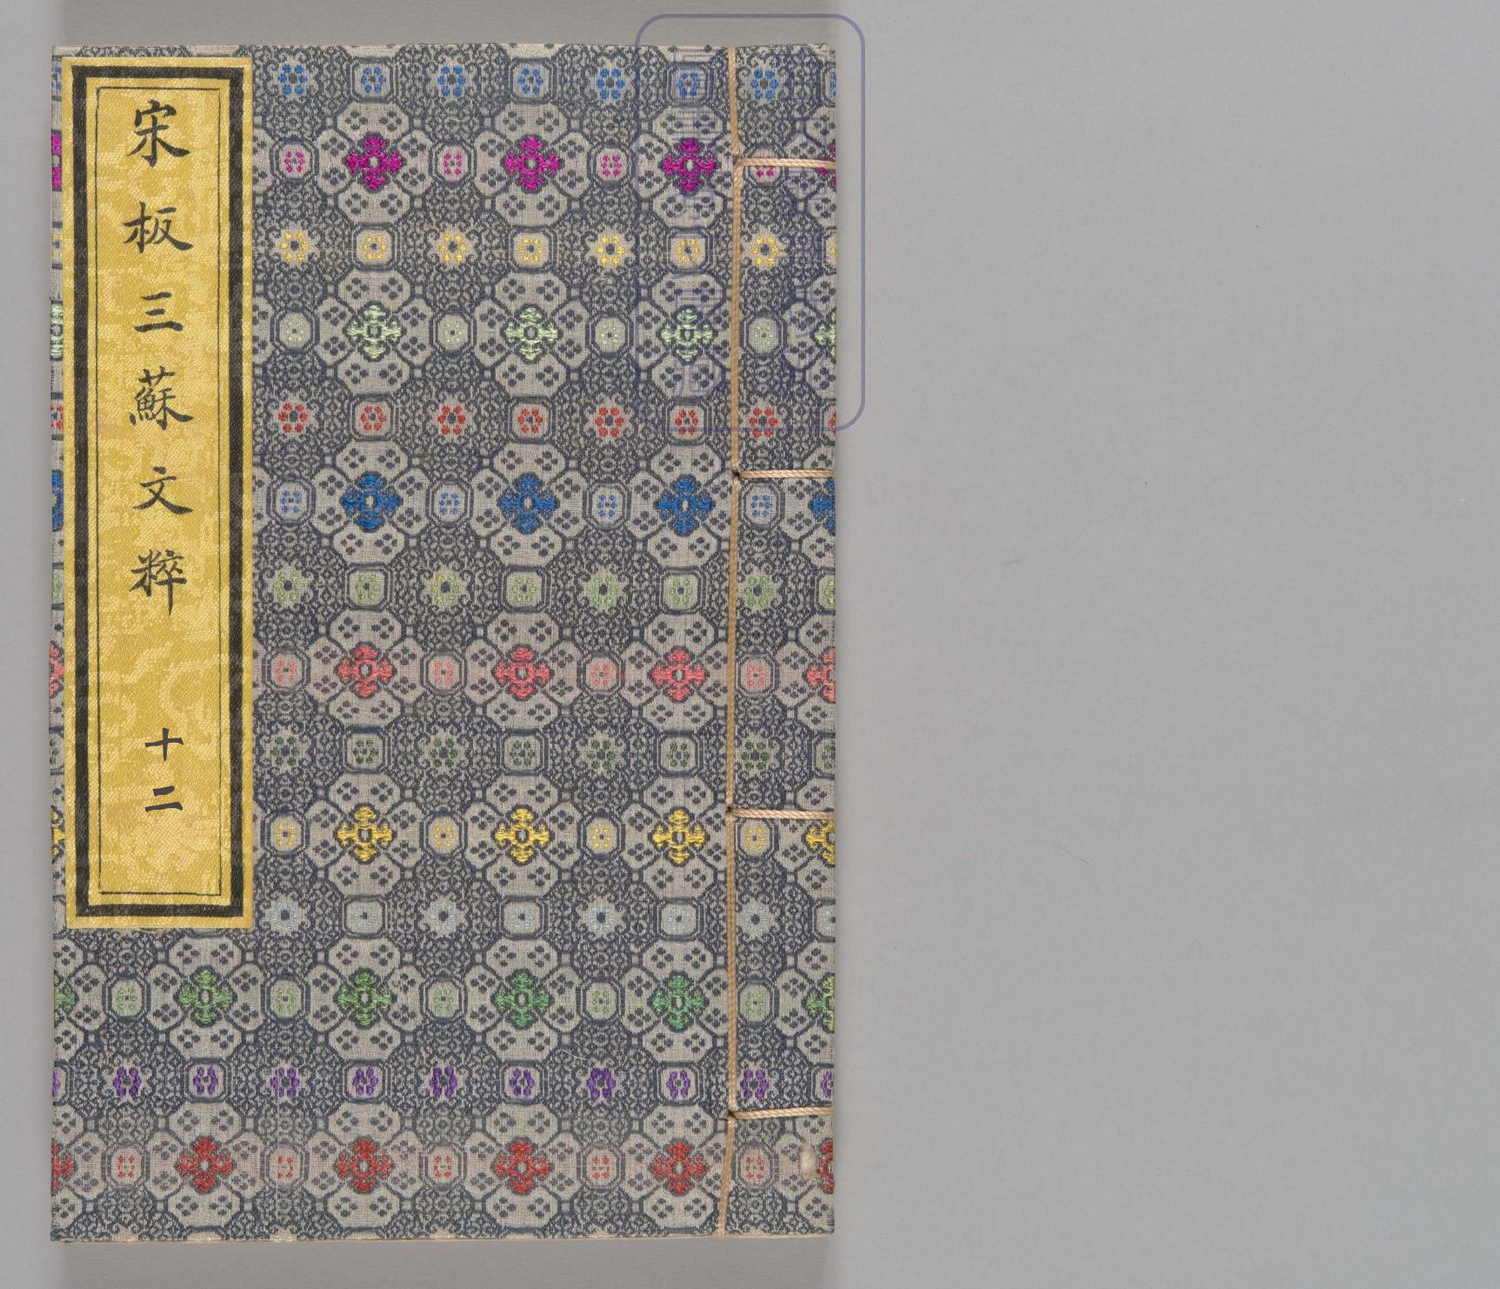 宋板三蘇文粹 十二